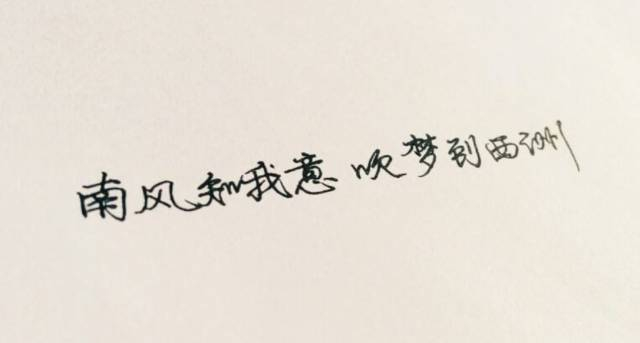 南风知我意 吹梦到西洲